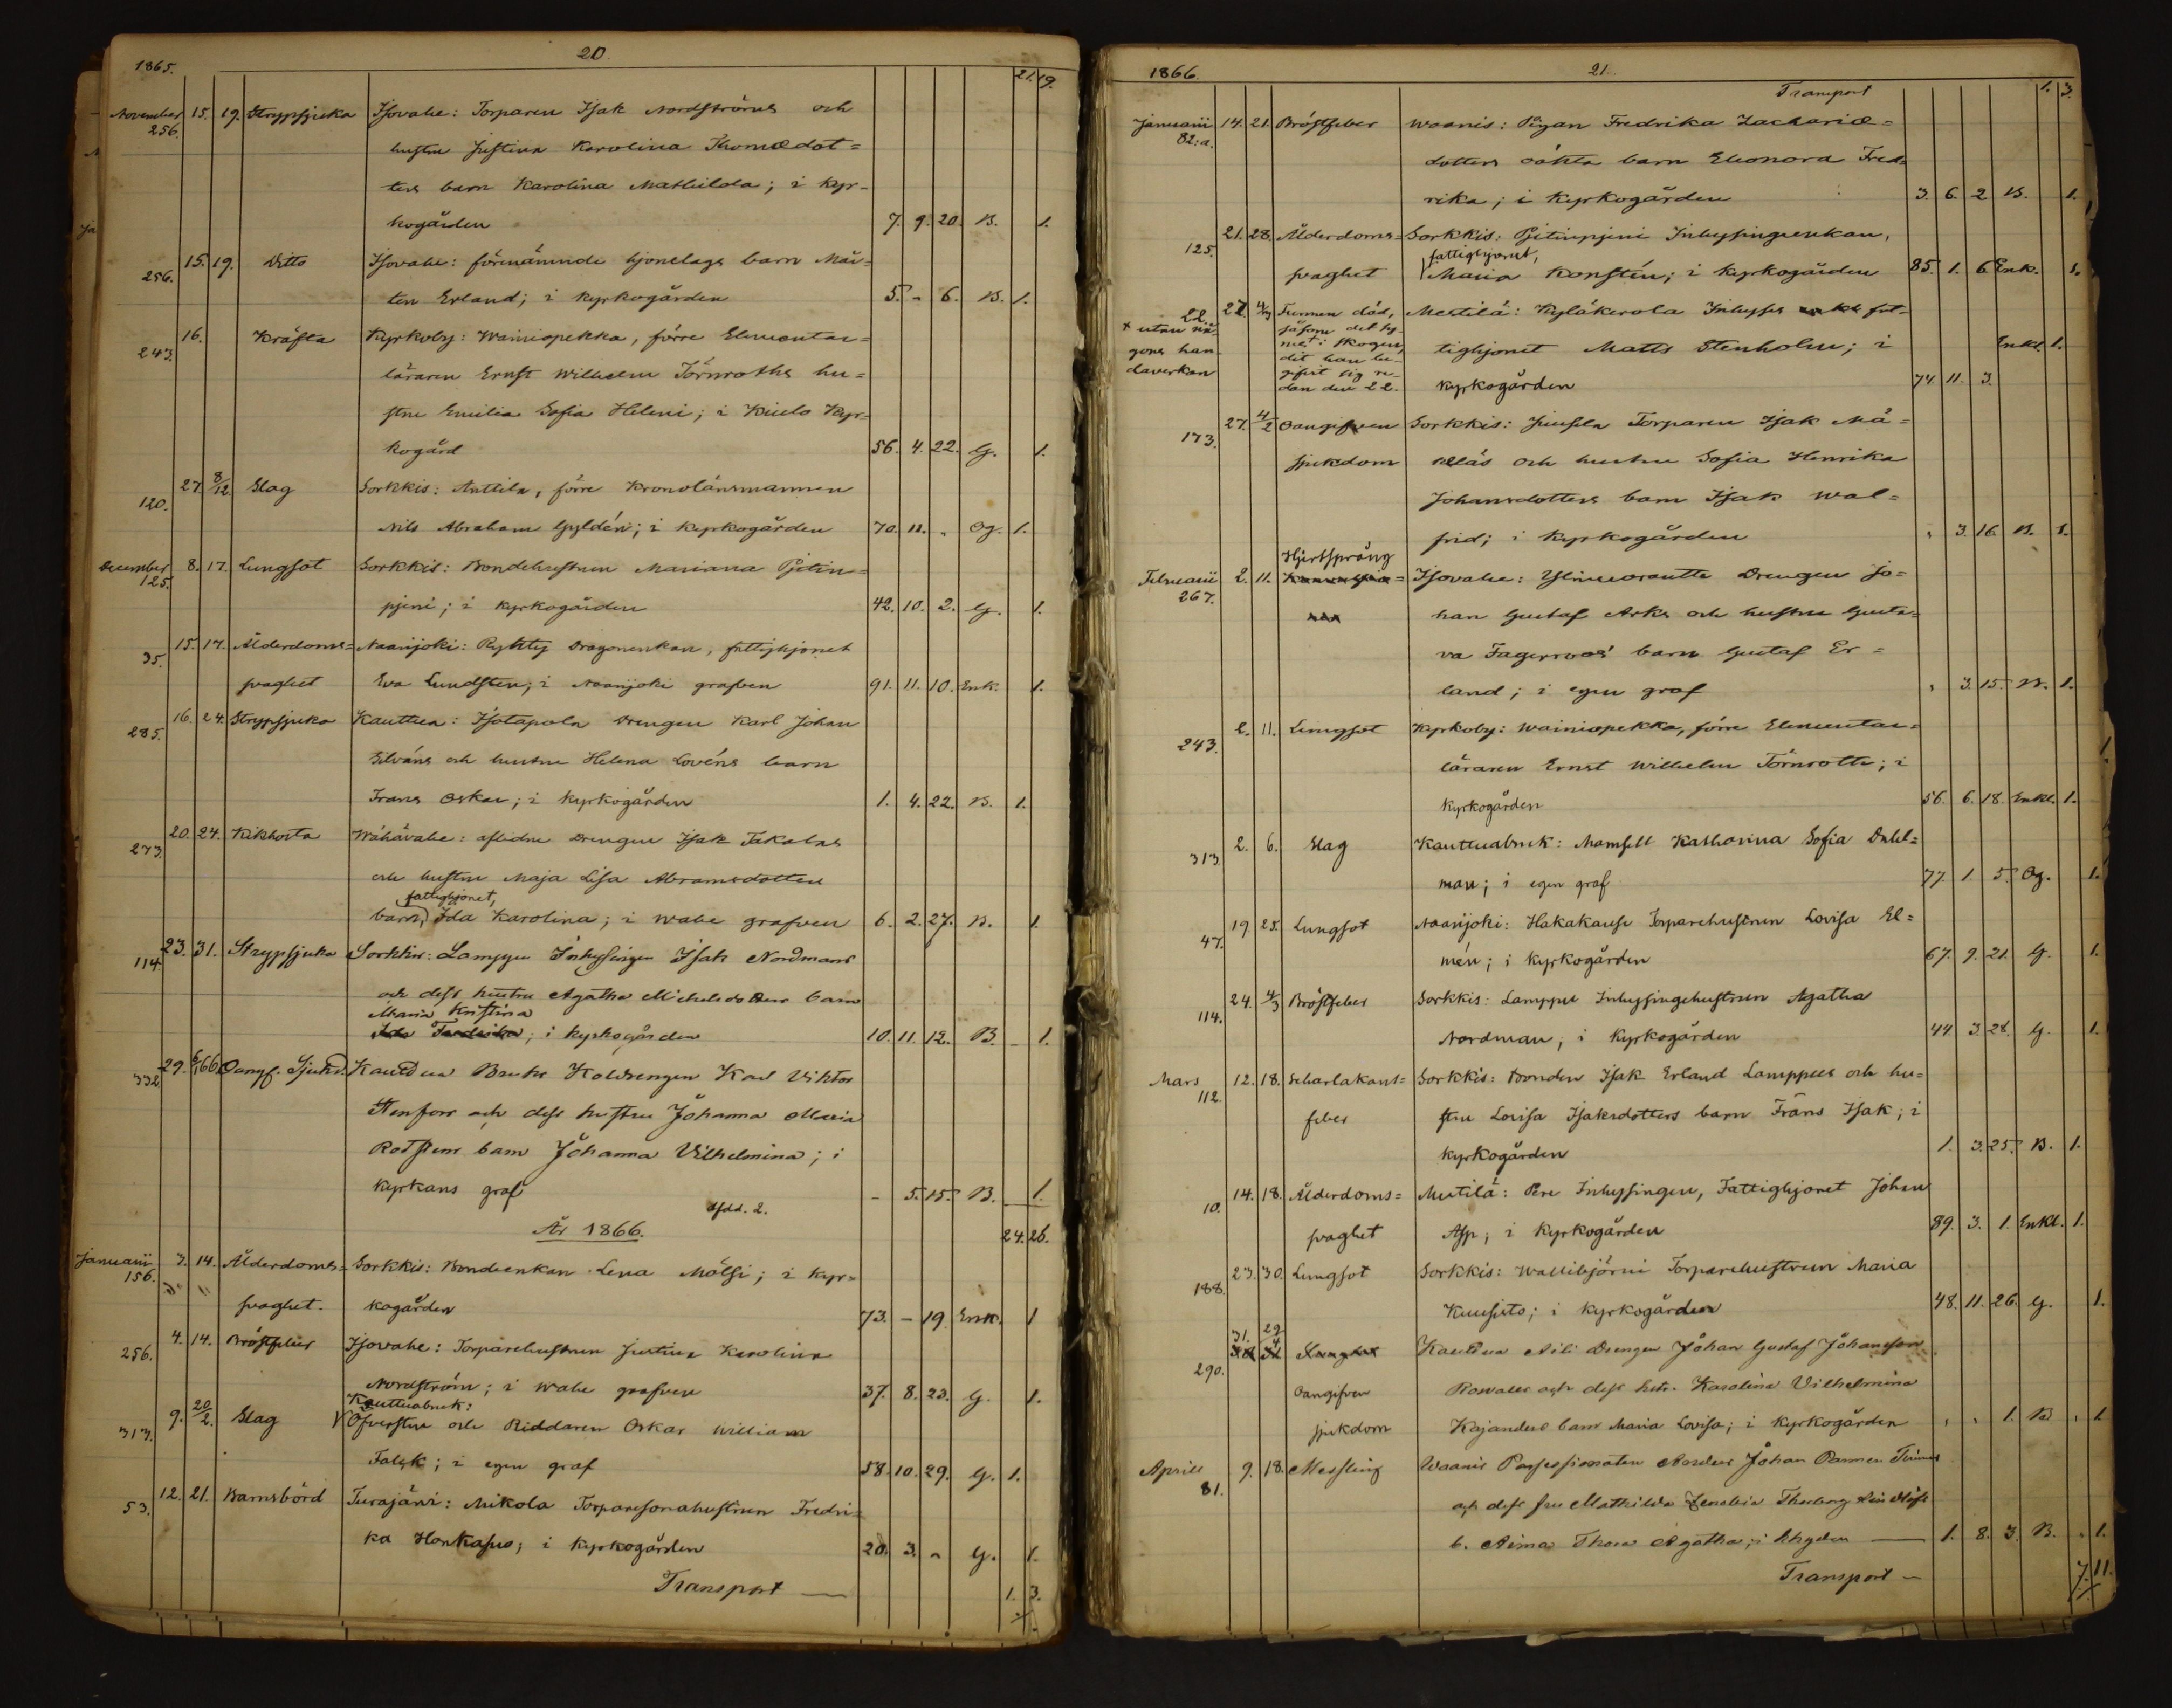 20
1865.
21. 19.
November 15. 19. Strypsjuka Isovahe: Torparen Isak Nordströms och
256.
hustru Justina Karolina Thomædot=
ters barn Karolina Mathilda; i kyr-
kogården 7. 9. 20. B. 1.
256. 15. 19. Ditto Isovahe: förenämnde hjonelags barn Mår-
ten Erland; i kyrkogården 5. - 6. B. 1.
243. 16. Kräfta Kyrkoby: Wainiopekka, förre Elementar=
läraren Ernst Wilhelm Törnroths hu=
stru Emilia Sofia Heleni; i Kiulo Kyr=
kogård 56. 4. 22. G. 1.
120. 27. 8/12 Slag Sorkkis: Anttila, förre Kronolänsmannen
Nils Abraham Gyldén; i kyrkogården 70. 11. - Og. 1.
December 8. 17. Lungsot Sorkkis: Bondehustrun Mariana Pitin=
125.
pjeni; i kyrkogården 42. 10. 2. G. 1.
35. 15. 17. Ålderdoms= Naarijoki: Ryhty Dragonenkan, fattighjonet
svaghet Eva Lundsten; i Naarijoki grafven 91. 11. 10. Enk. 1.
285. 16. 24. Strypsjuka Kauttua: Isotapola Drengen Karl Johan
Silväns och hustru Helena Lovéns barn
Frans Oskar; i kyrkogården 1. 4. 22. B. 1.
273. 20. 24. Kikhosta Wähävahe: aflidne Drengen Isak Takalas
och hustru Maja Lisa Abramsdotters
fattighjonet,
barn, Ida Karolina; i Wahe grafven 6. 2. 27. B. 1.
114. 23. 31. Strypsjuka Sorkkis: Lamppu Inhysingen Isak Nordmans
och dess hustru Agatha Michelsdotters barn
Maria Kristina
Ida Fredrika; i kyrkogården 10. 11. 12. B. - 1.
332 29. 6/1 66 Oangf. Sjukd. Kauttua Bruks Koldrengen Karl Viktor
Stenfors och dess hustru Johanna Maria
Rotstens barn Johanna Vilhelmina; i
kyrkans graf - 5. 15. B. 1.
Sfdd. 2.
År 1866. 24. 26.
Januarii 3. 14. Ålderdoms= Sorkkis: Bondeenkan Lena Mölsi; i kyr=
156.
svaghet. kogården 73. - 19. Enk. 1
256. 4. 14. Bröstfeber Isovahe: Torparehustrun Justina Karolina
Nordström; i Wahe grafven 37. 8. 23. G. 1.
Kauttuabruk:
313. 9. 20/2. Slag Öfversten och Riddaren Oskar William
Falck; i egen graf 58. 10. 29. G. 1.
53. 12. 21. Barnsbörd Turajärvi: Mikola Torparesonahustrun Fredri=
ka Honkasuo; i kyrkogården 20. 3. - G. 1.
Transport — 1. 3.
1866. 21.
Transport 1. 3.
Januarii 14. 21. Bröstfeber Waanis: Pigan Fredrika Zachariæ=
82:a.
dotters oäkta barn Eleonora Fred-
rika; i Kyrkogården 3. 6. 2 B. 1.
125. 21. 28. Ålderdoms= Sorkkis: Pitinpjeni Inhysingsenkan,
fattighjonet,
svaghet Maria Konstén; i kyrkogården 85. 1. 6. Enk. 1.
22. 27. 4/2 Funnen död, Mestilä: Kyläkerola Inhyses fat-
+ utan nå- såsom det hg-
met i skogen, tighjonet Matts Stenholm; i Enkl. 1.
gons han- dit han be-
daverkan gifvit sig re-
dan den 22. kyrkogården 74. 11. 3.
173. 27. 4/2 Oangifven Sorkkis: Juusela Torparen Isak Mä=
sjukdom keläs och hustru Sofia Henrika
Johansdotters barn Isak Wal=
frid; i kyrkogården , 3. 16. B. 1.
Hjertsprång
Februarii 2. 11. Isovahe: Ylinenorantta Drengen Jo=
267.
han Gustaf Arks och hustru Gusta=
va Fagerroos' barn Gustaf Er=
land; i egen graf , 3. 15. B. 1.
243. 2. 11. Lungsot Kyrkoby: Wainiopekka, förre Elementar=
läraren Ernst Wilhelm Törnroth; i
kyrkogården 56. 6. 18. Enkl. 1.
313 2. 6. Slag Kauttuabruk: Mamsell Katharina Sofia Dahl=
man; i egen graf 77. 1. 5. Og. 1.
47. 19. 25. Lungsot Naarijoki: Hakakause Torparehustrun Lovisa El=
mén; i kyrkogården 67. 9. 21. G. 1.
114. 24. 4/3 Bröstfeber Sorkkis: Lamppu Inhysingehustrun Agatha
Nordman; i kyrkogården 44. 3. 28. G. 1.
Mars 12. 18. Scharlakans= Sorkkis: Bonden Isak Erland Lamppus och hu=
112.
feber stru Lovisa Isaksdotters barn Frans Isak; i
kyrkogården 1. 3. 25. B. 1.
10. 14. 18. Ålderdoms= Mestilä: Pere Inhysingen, Fattighjonet Johan
svaghet Asp; i kyrkogården 89. 3. 1. Enkl. 1.
188. 23. 30. Lungsot Sorkkis: Wallibjörni Torparehustrun Maria
Kuusisto; i kyrkogården 48. 11. 26. G. 1.
290. 31. 29/4 Lungsot Kauttua Aili Drengen Johan Gustaf Johansson
Oangifven Rowales och dess hstr. Karolina Vilhelmina
sjukdom Kajanders barn Maria Lovisa; i kyrkogården , , 1. B , 1.
Aprill 9. 18. Messling Waanis Possessionaten Johan
81.
och dess fru Mathilda Zenobia
b. Aina Thora Agatha; i khgden — 1. 8. 3. B. . 1.
Transport — 7. 11.